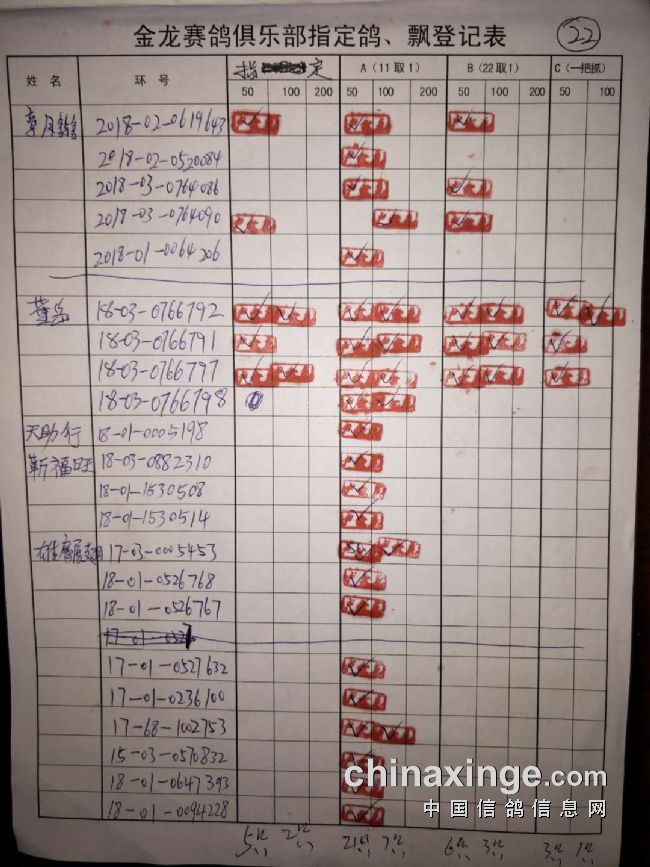 金龙赛鸽俱乐部指定鸽、飘登记表 22
姓 名 环 号 指 定 A (11取1) B (22取1) C (一把抓)
50 100 200 50 100 200 50 100 200 50 100
2018-02-0619643
2018-02-0520084
2018-03-0764086
2018-03-0764090
2018-01-0064206
董岳 18-03-0766792
18-03-0766791
18-03-0766797
18-03-0766798
天助行 18-01-0005198
靳福旺 18-03-0882310
18-01-1530508
18-01-1530514
雄鹰展翅 17-03-0005453
18-01-0526768
18-01-0526767
17-01-0527632
17-01-0236100
17-68-1002753
15-03-0570832
18-01-0647393
18-01-0094228
chinaxinge.com
中国信鸽信息网